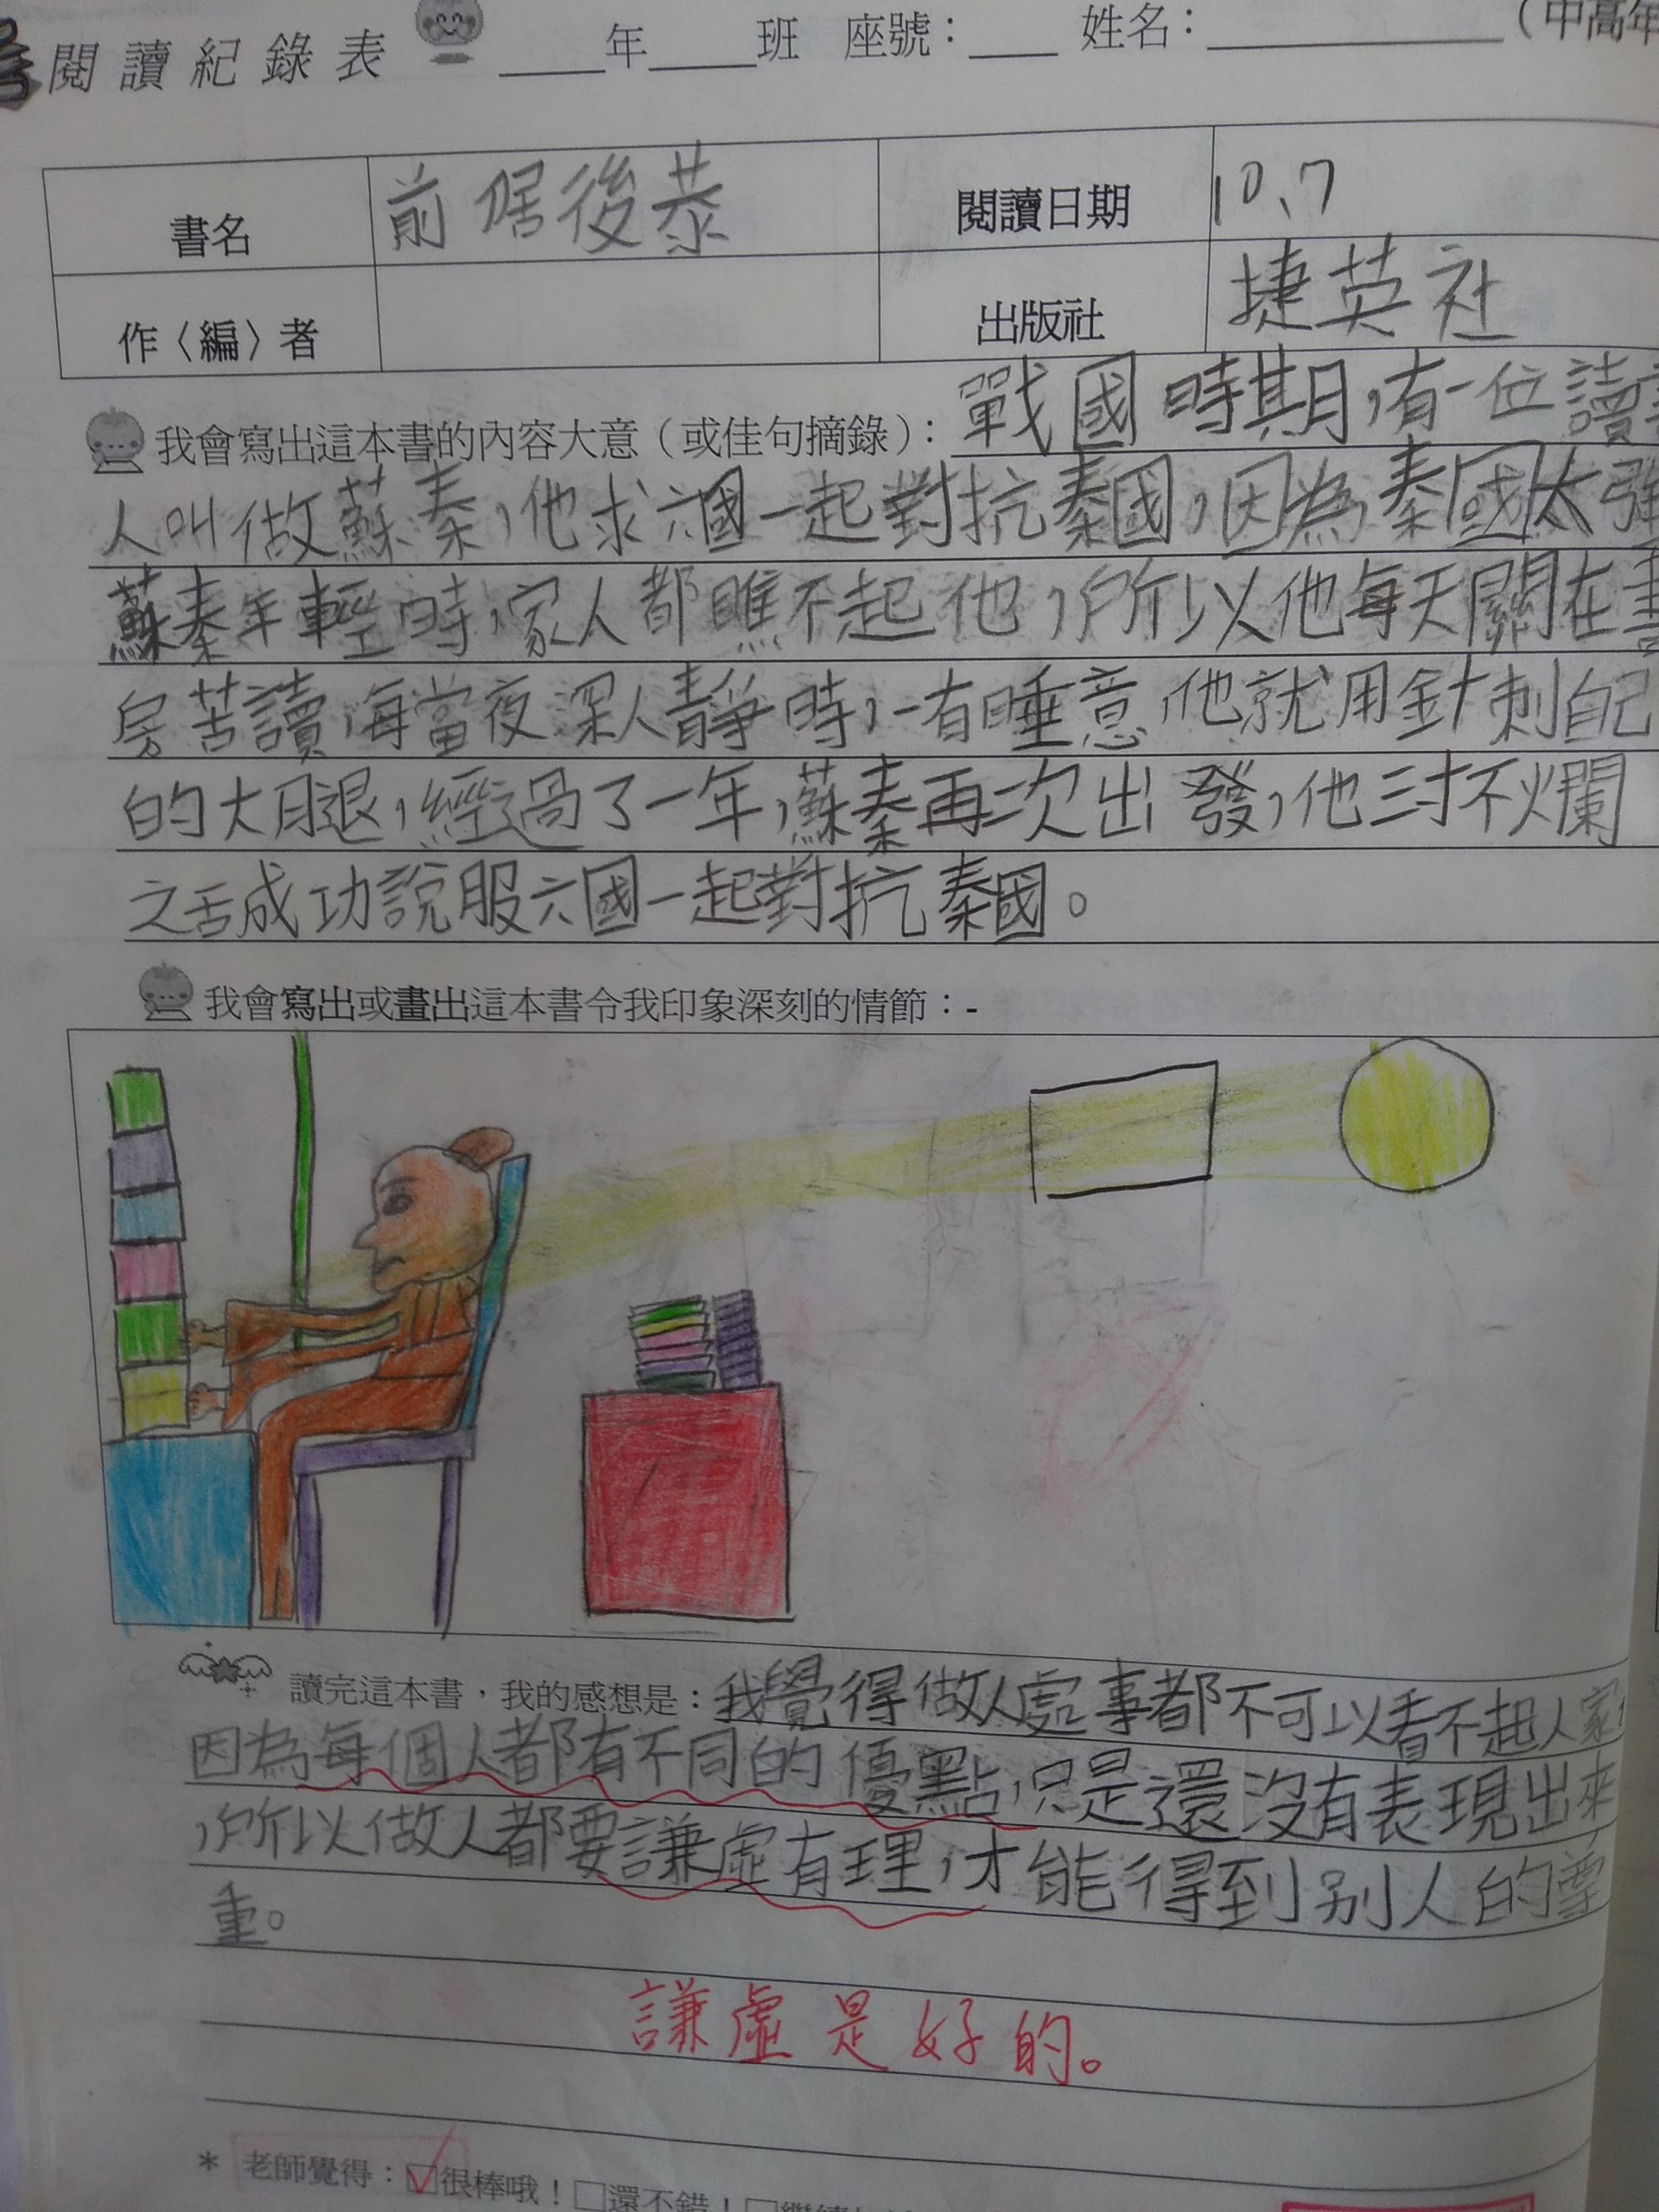 閱讀紀錄表 ____年____班 座號：___ 姓名：__________（中高年
書名 前倨後恭 閱讀日期 10、7
作〈編〉者 出版社 捷英社
我會寫出這本書的內容大意（或佳句摘錄）：戰國時期，有一位讀書
人叫做蘇秦，他求六國一起對抗秦國，因為，秦國太強
蘇秦年輕時，家人都瞧不起他，所以他每天關在書
房苦讀，每當夜深人靜時，一有睡意，他就用針刺自己
的大腿，經過了一年，蘇秦再次出發，他三寸不爛
之舌成功說服六國一起對抗秦國。
我會寫出或畫出這本書令我印象深刻的情節：-
讀完這本書，我的感想是：我覺得做人處事都不可以看不起人家
因為每個人都有不同的優點，只是還沒有表現出來
，所以做人都要謙虛有理，才能得到別人的尊
重。
謙虛是好的。
* 老師覺得：☑很棒哦！□還不錯！□繼續